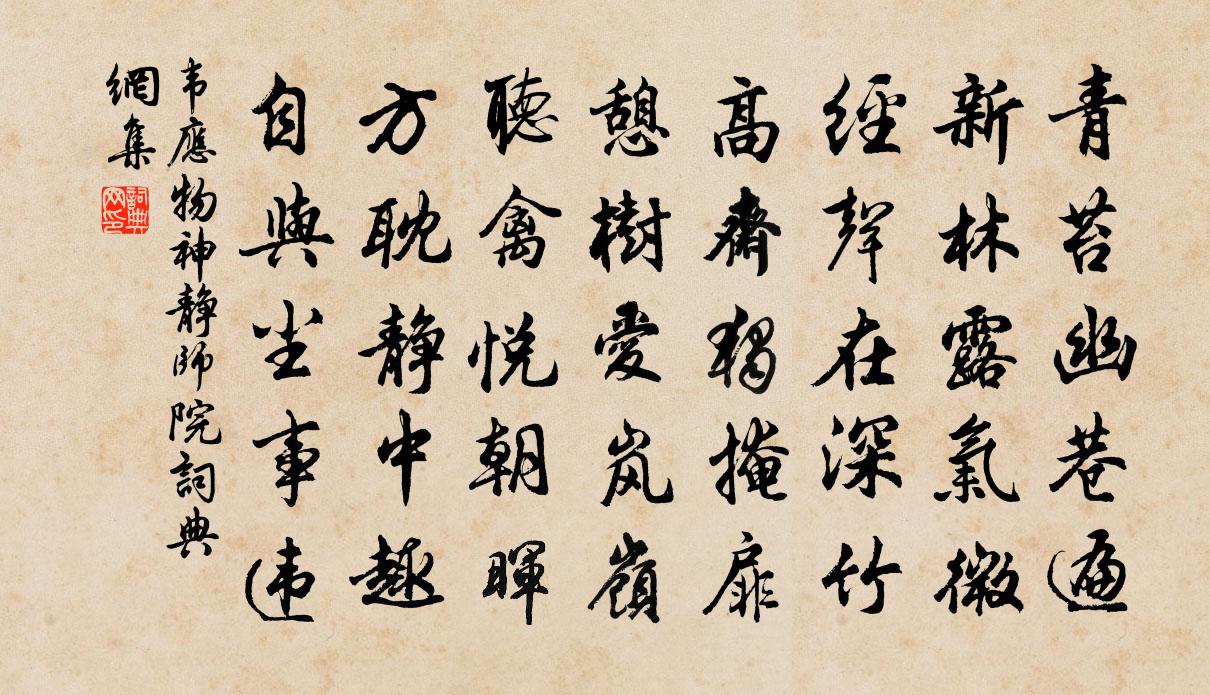 青苔幽巷遍
新林露氣微
經聲在深竹
高齋獨掩扉
憩樹愛岚嶺
聽禽悦朝暉
方耽静中趣
自與尘事违
韦應物神静師院詞典
網集
詞典
网印